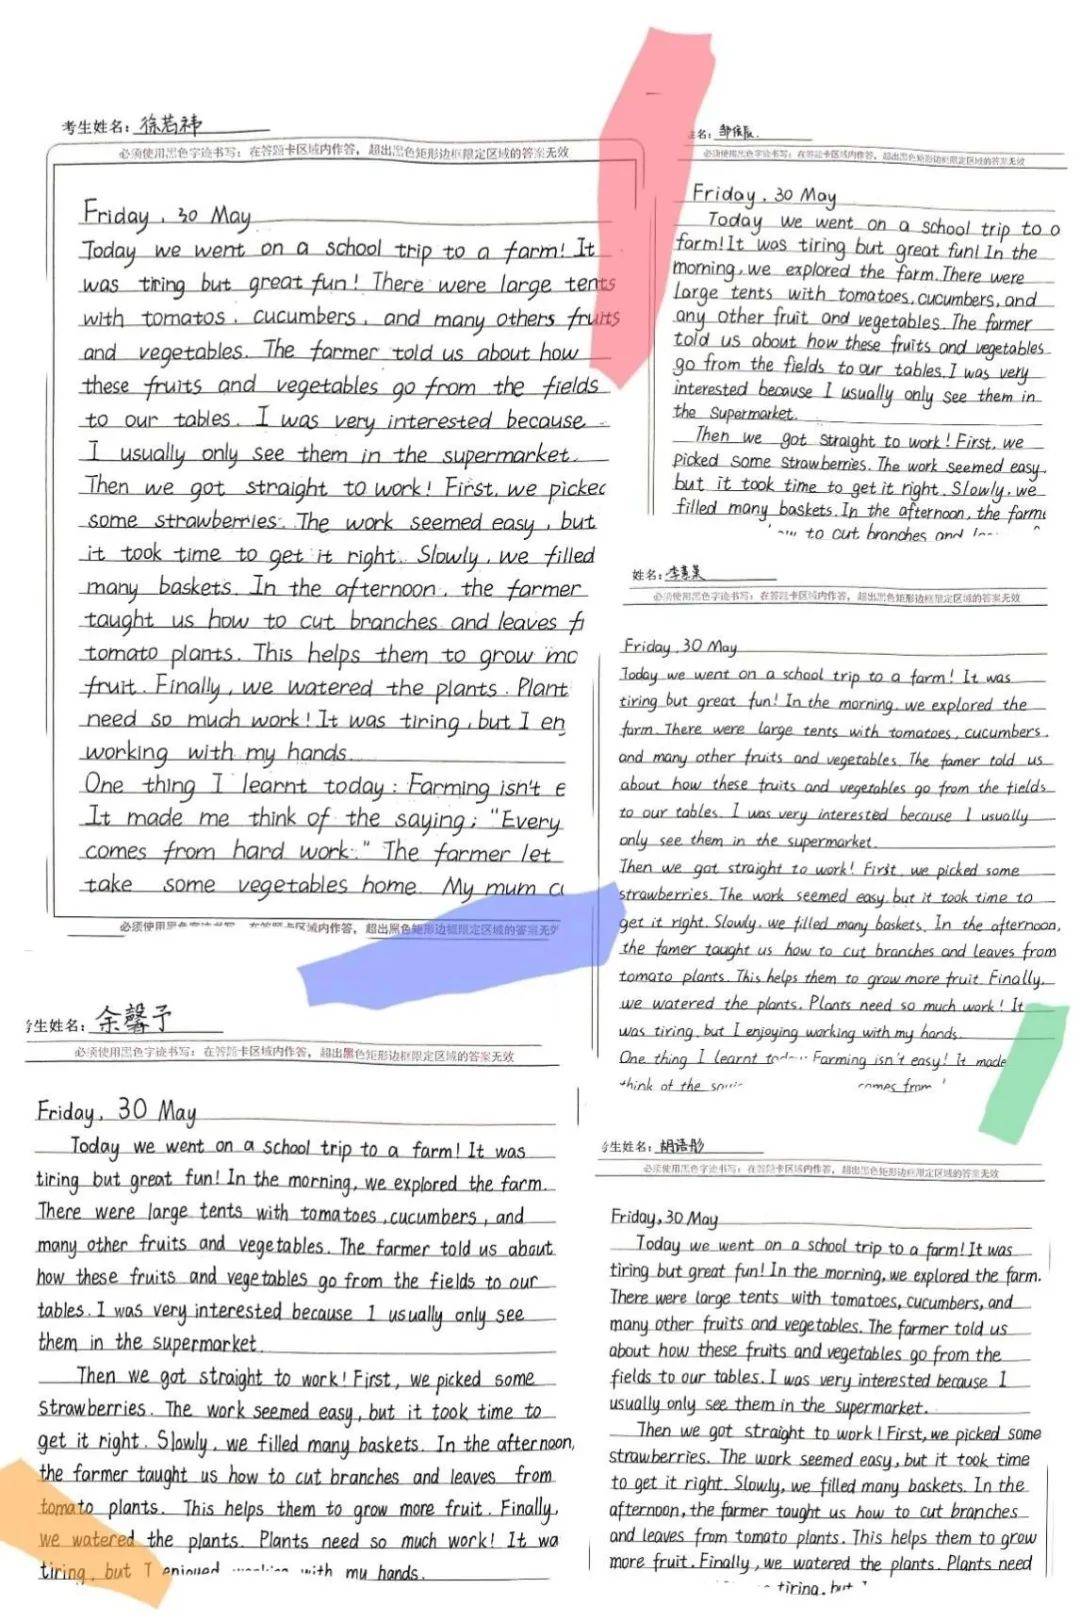 考生姓名：徐若祎
必须使用黑色字迹书写；在答题卡区域内作答，超出黑色矩形边框限定区域的答案无效
Friday, 30 May
Today we went on a school trip to a farm! It
was tiring but great fun! There were large tents
with tomatos, cucumbers, and many others fruits
and vegetables. The farmer told us about how
these fruits and vegetables go from the fields
to our tables. I was very interested because
I usually only see them in the supermarket.
Then we got straight to work! First, we picked
some strawberries. The work seemed easy, but
it took time to get it right. Slowly, we filled
many baskets. In the afternoon, the farmer
taught us how to cut branches and leaves f
tomato plants. This helps them to grow mo
fruit. Finally, we watered the plants. Plant
need so much work! It was tiring, but I en
working with my hands.
One thing I learnt today: Farming isn't e
It made me think of the saying: "Every
comes from hard work." The farmer let
take some vegetables home. My mum c
必须使用黑色字迹书写；在答题卡区域内作答，超出黑色矩形边框限定区域的答案无效
名：
必须使用黑色字迹书写；在答题卡区域内作答，超出黑色矩形边框限定区域的答案无效
Friday, 30 May
Today we went on a school trip to a
farm! It was tiring but great fun! In the
morning, we explored the farm. There were
large tents with tomatoes, cucumbers, and
any other fruit and vegetables. The farmer
told us about how these fruits and vegetables
go from the fields to our tables. I was very
interested because I usually only see them in
the supermarket.
Then we got straight to work! First, we
picked some strawberries. The work seemed easy,
but it took time to get it right. Slowly, we
filled many baskets. In the afternoon, the farme
to cut branches and
姓名：
必须使用黑色字迹书写；在答题卡区域内作答，超出黑色矩形边框限定区域的答案无效
Friday, 30 May
Today we went on a school trip to a farm! It was
tiring but great fun! In the morning, we explored the
farm. There were large tents with tomatoes, cucumbers,
and many other fruits and vegetables. The famer told us
about how these fruits and vegetables go from the fields
to our tables. I was very interested because I usually
only see them in the supermarket.
Then we got straight to work! First, we picked some
strawberries. The work seemed easy but it took time to
get it right. Slowly, we filled many baskets. In the afternoon,
the famer taught us how to cut branches and leaves from
tomato plants. This helps them to grow more fruit. Finally,
we watered the plants. Plants need so much work! It
was tiring, but I enjoying working with my hands.
One thing I learnt Farming isn't easy! It made
think of the comes from
考生姓名：余馨予
必须使用黑色字迹书写；在答题卡区域内作答，超出黑色矩形边框限定区域的答案无效
Friday, 30 May
Today we went on a school trip to a farm! It was
tiring but great fun! In the morning, we explored the farm.
There were large tents with tomatoes, cucumbers, and
many other fruits and vegetables. The farmer told us about
how these fruits and vegetables go from the fields to our
tables. I was very interested because I usually only see
them in the supermarket.
Then we got straight to work! First, we picked some
strawberries. The work seemed easy, but it took time to
get it right. Slowly, we filled many baskets. In the afternoon,
the farmer taught us how to cut branches and leaves from
tomato plants. This helps them to grow more fruit. Finally,
we watered the plants. Plants need so much work! It wa
tiring, but I enjoyed working with my hands.
考生姓名：胡语彤
必须使用黑色字迹书写；在答题卡区域内作答，超出黑色矩形边框限定区域的答案无效
Friday, 30 May
Today we went on a school trip to a farm! It was
tiring but great fun! In the morning, we explored the farm.
There were large tents with tomatoes, cucumbers, and
many other fruits and vegetables. The farmer told us
about how these fruits and vegetables go from the
fields to our tables. I was very interested because I
usually only see them in the supermarket.
Then we got straight to work! First, we picked some
strawberries. The work seemed easy, but it took time
to get it right. Slowly, we filled many baskets. In the
afternoon, the farmer taught us how to cut branches
and leaves from tomato plants. This helps them to grow
more fruit. Finally, we watered the plants. Plants need
tiring, but